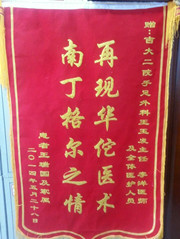 赠:吉大二院手足外科王玉发主任 李洋医师
及全体医护人员
再现华佗医术
南丁格尔之情
患者王瑞园及家属
二〇一四年三月二十八日